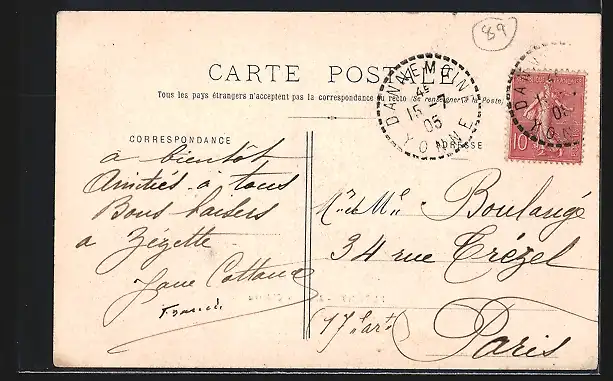 89
CARTE POSTALE
Tous les pays étrangers n'acceptent pas la correspondance au recto (Se renseigner à la Poste)
DANNEMOINE
4E
15 - 7
05
YONNE
10
CORRESPONDANCE
ADRESSE
a bientôt
Amitiés à tous
Bons baisers
a Zézette
Jane
M. et Me Boulangé
34 rue Trézel
(17e art)
Paris